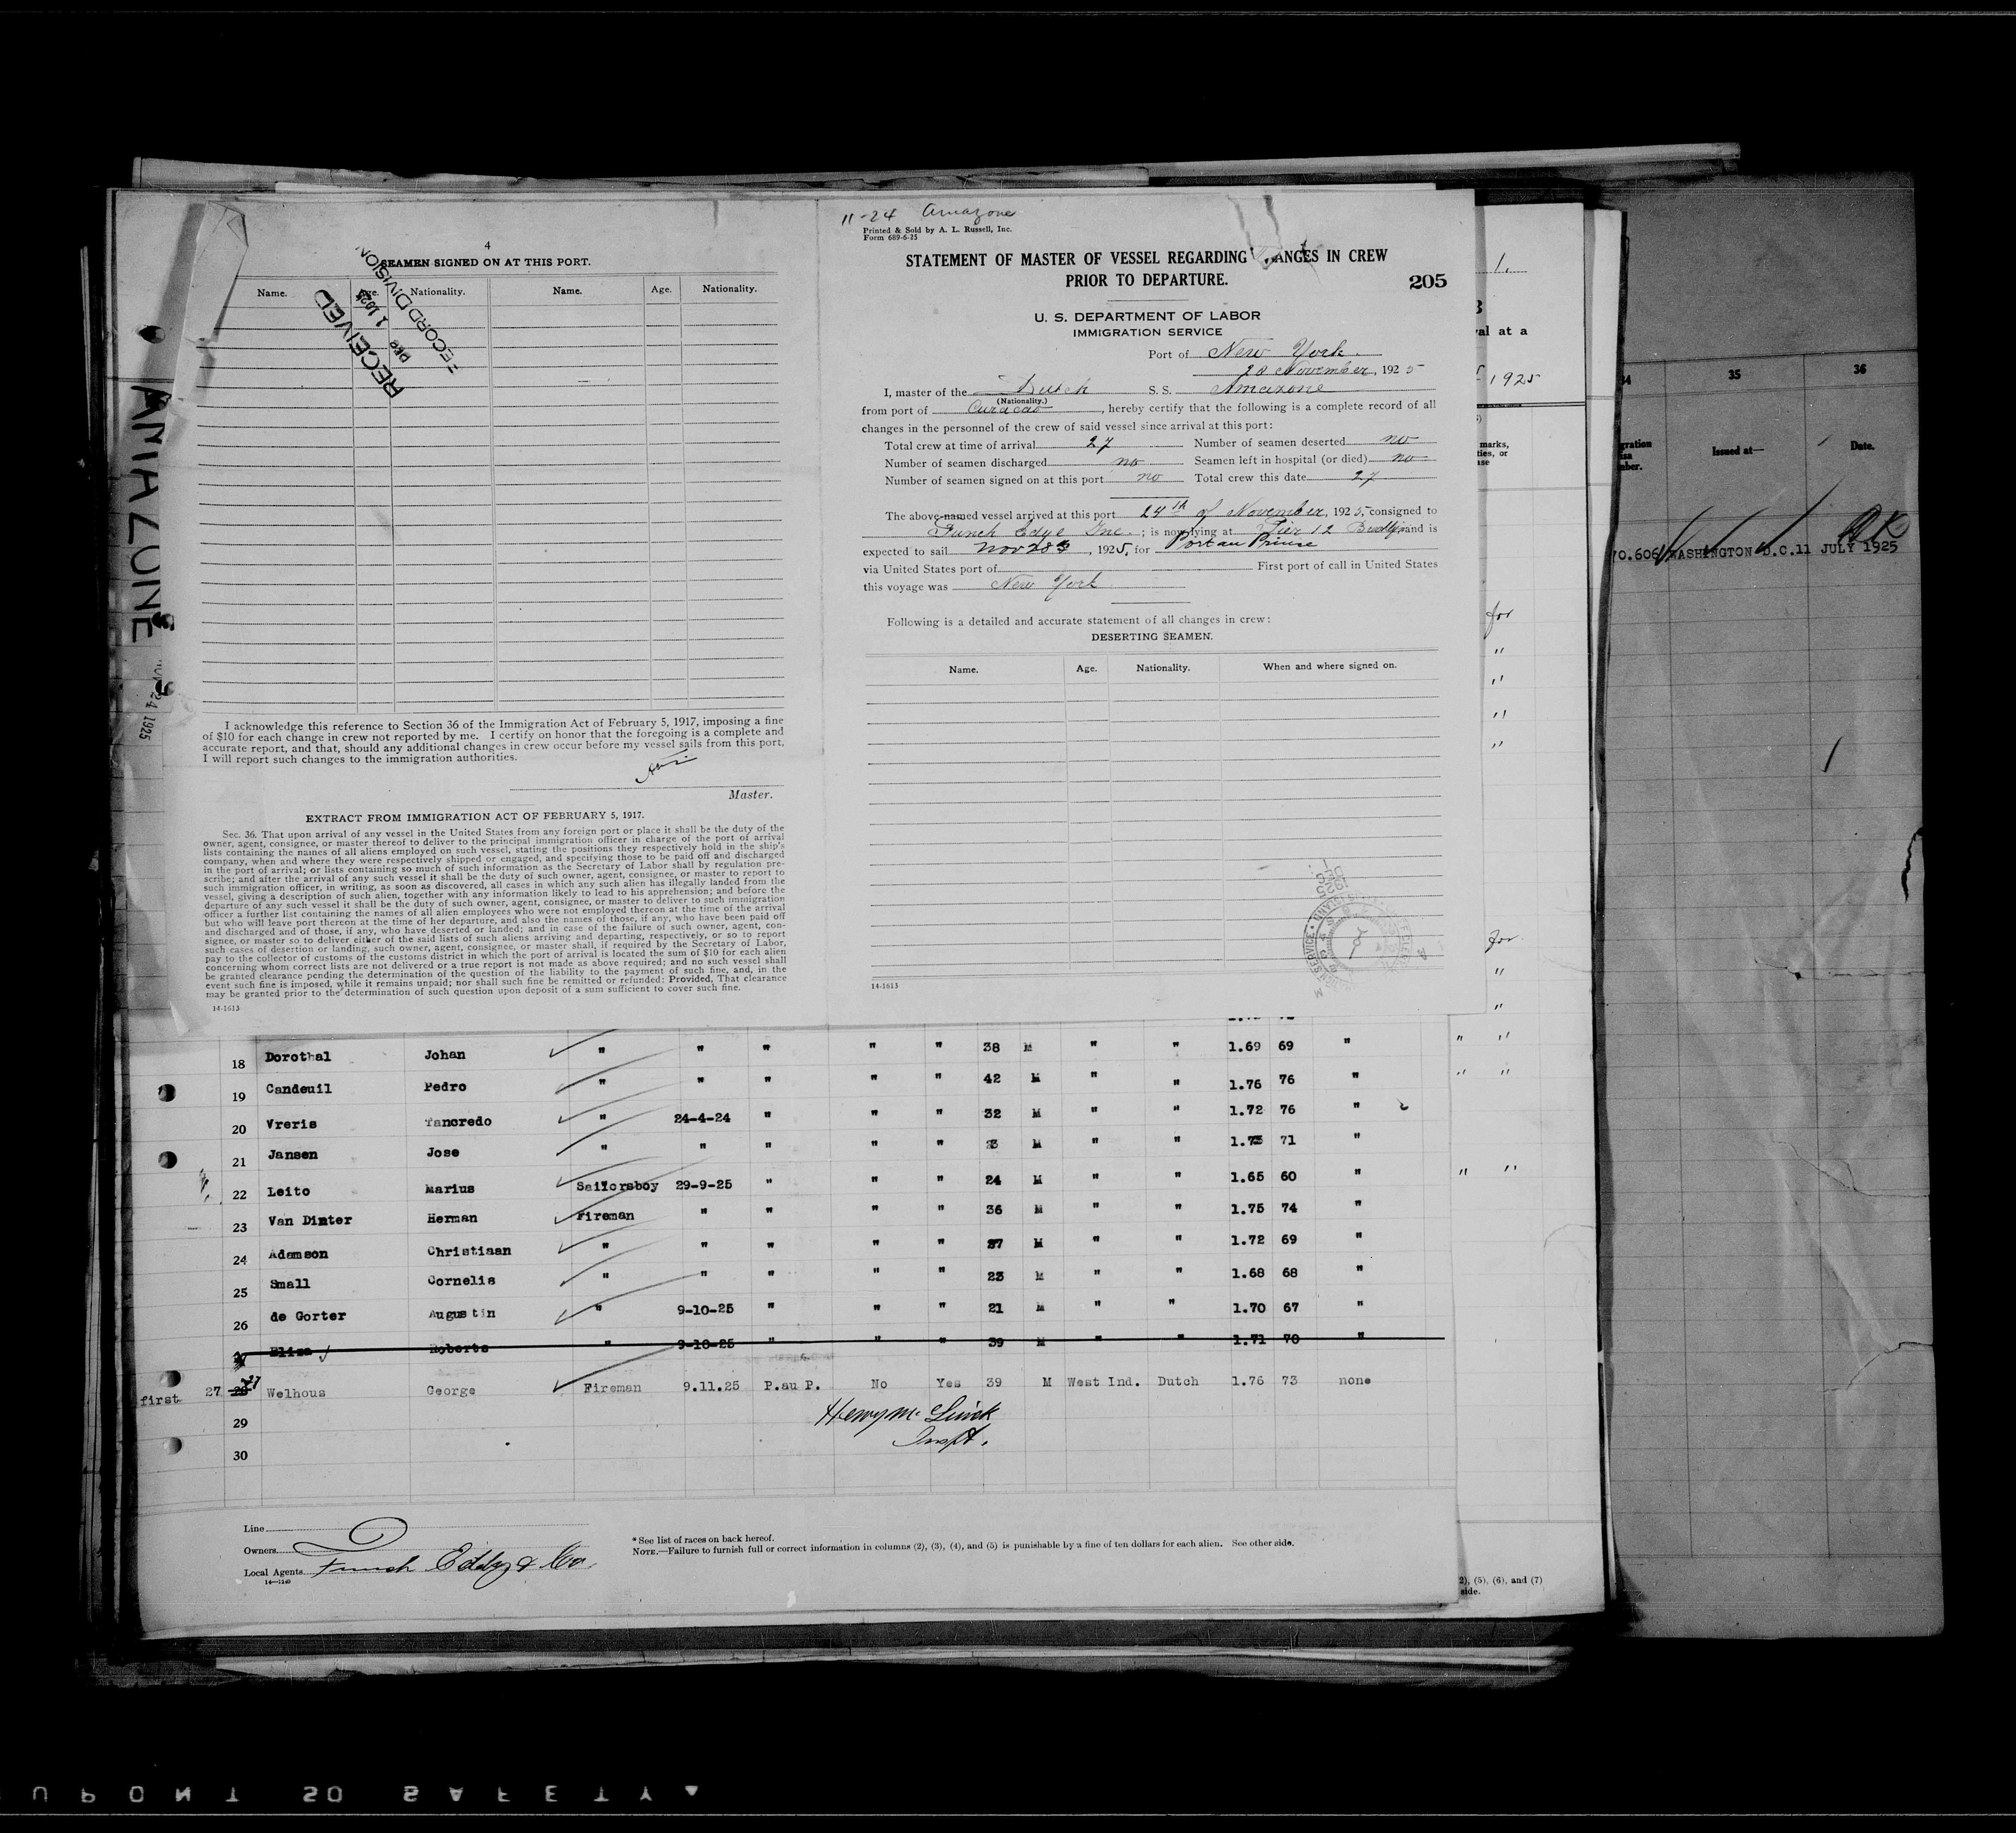 4
SEAMEN SIGNED ON AT THIS PORT.
Name. Age. Nationality. Name. Age. Nationality.
RECEIVED
DEC 1 1925
RECORD DIVISION
AMAZONE
NOV 24 1925
I acknowledge this reference to Section 36 of the Immigration Act of February 5, 1917, imposing a fine
of $10 for each change in crew not reported by me. I certify on honor that the foregoing is a complete and
accurate report, and that, should any additional changes in crew occur before my vessel sails from this port,
I will report such changes to the immigration authorities.
Master.
EXTRACT FROM IMMIGRATION ACT OF FEBRUARY 5, 1917.
Sec. 36. That upon arrival of any vessel in the United States from any foreign port or place it shall be the duty of the
owner, agent, consignee, or master thereof to deliver to the principal immigration officer in charge of the port of arrival
lists containing the names of all aliens employed on such vessel, stating the positions they respectively hold in the ship's
company, when and where they were respectively shipped or engaged, and specifying those to be paid off and discharged
in the port of arrival; or lists containing so much of such information as the Secretary of Labor shall by regulation pre-
scribe; and after the arrival of any such vessel it shall be the duty of such owner, agent, consignee, or master to report to
such immigration officer, in writing, as soon as discovered, all cases in which any such alien has illegally landed from the
vessel, giving a description of such alien, together with any information likely to lead to his apprehension; and before the
departure of any such vessel it shall be the duty of such owner, agent, consignee, or master to deliver to such immigration
officer a further list containing the names of all alien employees who were not employed thereon at the time of the arrival
but who will leave port thereon at the time of her departure, and also the names of those, if any, who have been paid off
and discharged and of those, if any, who have deserted or landed; and in case of the failure of such owner, agent, con-
signee, or master so to deliver either of the said lists of such aliens arriving and departing, respectively, or so to report
such cases of desertion or landing, such owner, agent, consignee, or master shall, if required by the Secretary of Labor,
pay to the collector of customs of the customs district in which the port of arrival is located the sum of $10 for each alien
concerning whom correct lists are not delivered or a true report is not made as above required; and no such vessel shall
be granted clearance pending the determination of the question of the liability to the payment of such fine, and, in the
event such fine is imposed, while it remains unpaid; nor shall such fine be remitted or refunded: Provided, That clearance
may be granted prior to the determination of such question upon deposit of a sum sufficient to cover such fine.
14-1613
11-24 Amazone
Printed & Sold by A. L. Russell, Inc.
Form 689-6-25
STATEMENT OF MASTER OF VESSEL REGARDING CHANGES IN CREW
PRIOR TO DEPARTURE.
205
U. S. DEPARTMENT OF LABOR
IMMIGRATION SERVICE
Port of New York.
28 November, 1925
I, master of the Dutch S. S. Amazone
(Nationality.)
from port of Curacao, hereby certify that the following is a complete record of all
changes in the personnel of the crew of said vessel since arrival at this port:
Total crew at time of arrival 27 Number of seamen deserted no
Number of seamen discharged no Seamen left in hospital (or died) no
Number of seamen signed on at this port no Total crew this date 27
The above-named vessel arrived at this port 24th of November, 1925, consigned to
Funch Edye Inc.; is now lying at Pier 12 Brooklyn and is
expected to sail Nov 28, 1925, for Port au Prince
via United States port of First port of call in United States
this voyage was New York
Following is a detailed and accurate statement of all changes in crew:
DESERTING SEAMEN.
Name. Age. Nationality. When and where signed on.
14-1613
1.
al at a
1925
marks,
ties, or
for
" 
" 
" 
" 
for
" 
" 
34 35 36
Issued at— Date.
NO.606 WASHINGTON D.C. 11 JULY 1925
OK
18 Dorothal Johan " " " " " 38 M " " 1.69 69 " " "
19 Candeuil Pedro " " " " " 42 M " " 1.76 76 " " "
20 Vreris Tancredo " 24-4-24 " " " 32 M " " 1.72 76 "
21 Jansen Jose " " " " " M " " 71 "
22 Leito Marius Sailorsboy 29-9-25 " " " 24 M " " 1.65 60 " " "
23 Van Dinter Herman Fireman " " " " 36 M " " 1.75 74 "
24 Adamson Christiaan " " " " " 37 M " " 1.72 69 "
25 Small Cornelis " " " " " 23 M " " 1.68 68 "
26 de Gorter Augustin " 9-10-25 " " " 21 M " " 1.70 67 "
Eliza Roberts " 9-10-25 " " " 39 M " " 1.71 70 "
first 27 28 27 Welhous George Fireman 9.11.25 P.au P. No Yes 39 M West Ind. Dutch 1.76 73 none
29
30
Inspt.
Line
Owners
Local Agents Funch Eddy & Co.
14-1240
* See list of races on back hereof.
NOTE.—Failure to furnish full or correct information in columns (2), (3), (4), and (5) is punishable by a fine of ten dollars for each alien. See other side.
2), (5), (6), and (7)
side.
DUPONT SO SAFETY